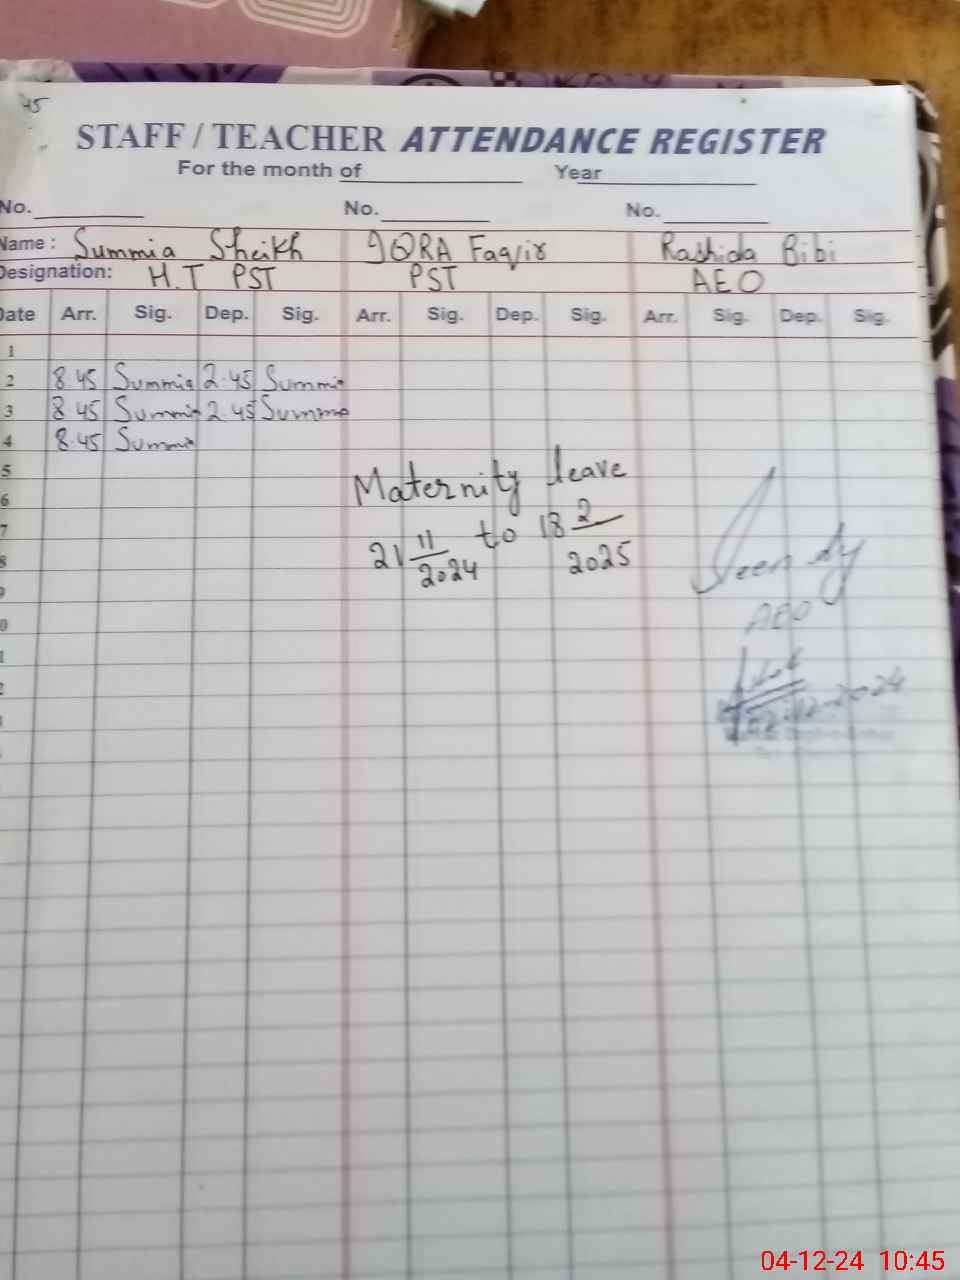 45
STAFF / TEACHER ATTENDANCE REGISTER
For the month of Year
No. No. No.
Name : Summia Sheikh IQRA Faqir Rashida Bibi
Designation: H.T PST PST AEO
Date Arr. Sig. Dep. Sig. Arr. Sig. Dep. Sig. Arr. Sig. Dep. Sig.
1
2 8:45 Summia 2:45 Summia
3 8:45 Summia 2:45 Summia
4 8:45 Summia
5
6 Maternity leave
7 21 11 to 18 2
8 2024 2025
Seen by
AEO
12-2024
04-12-24 10:45